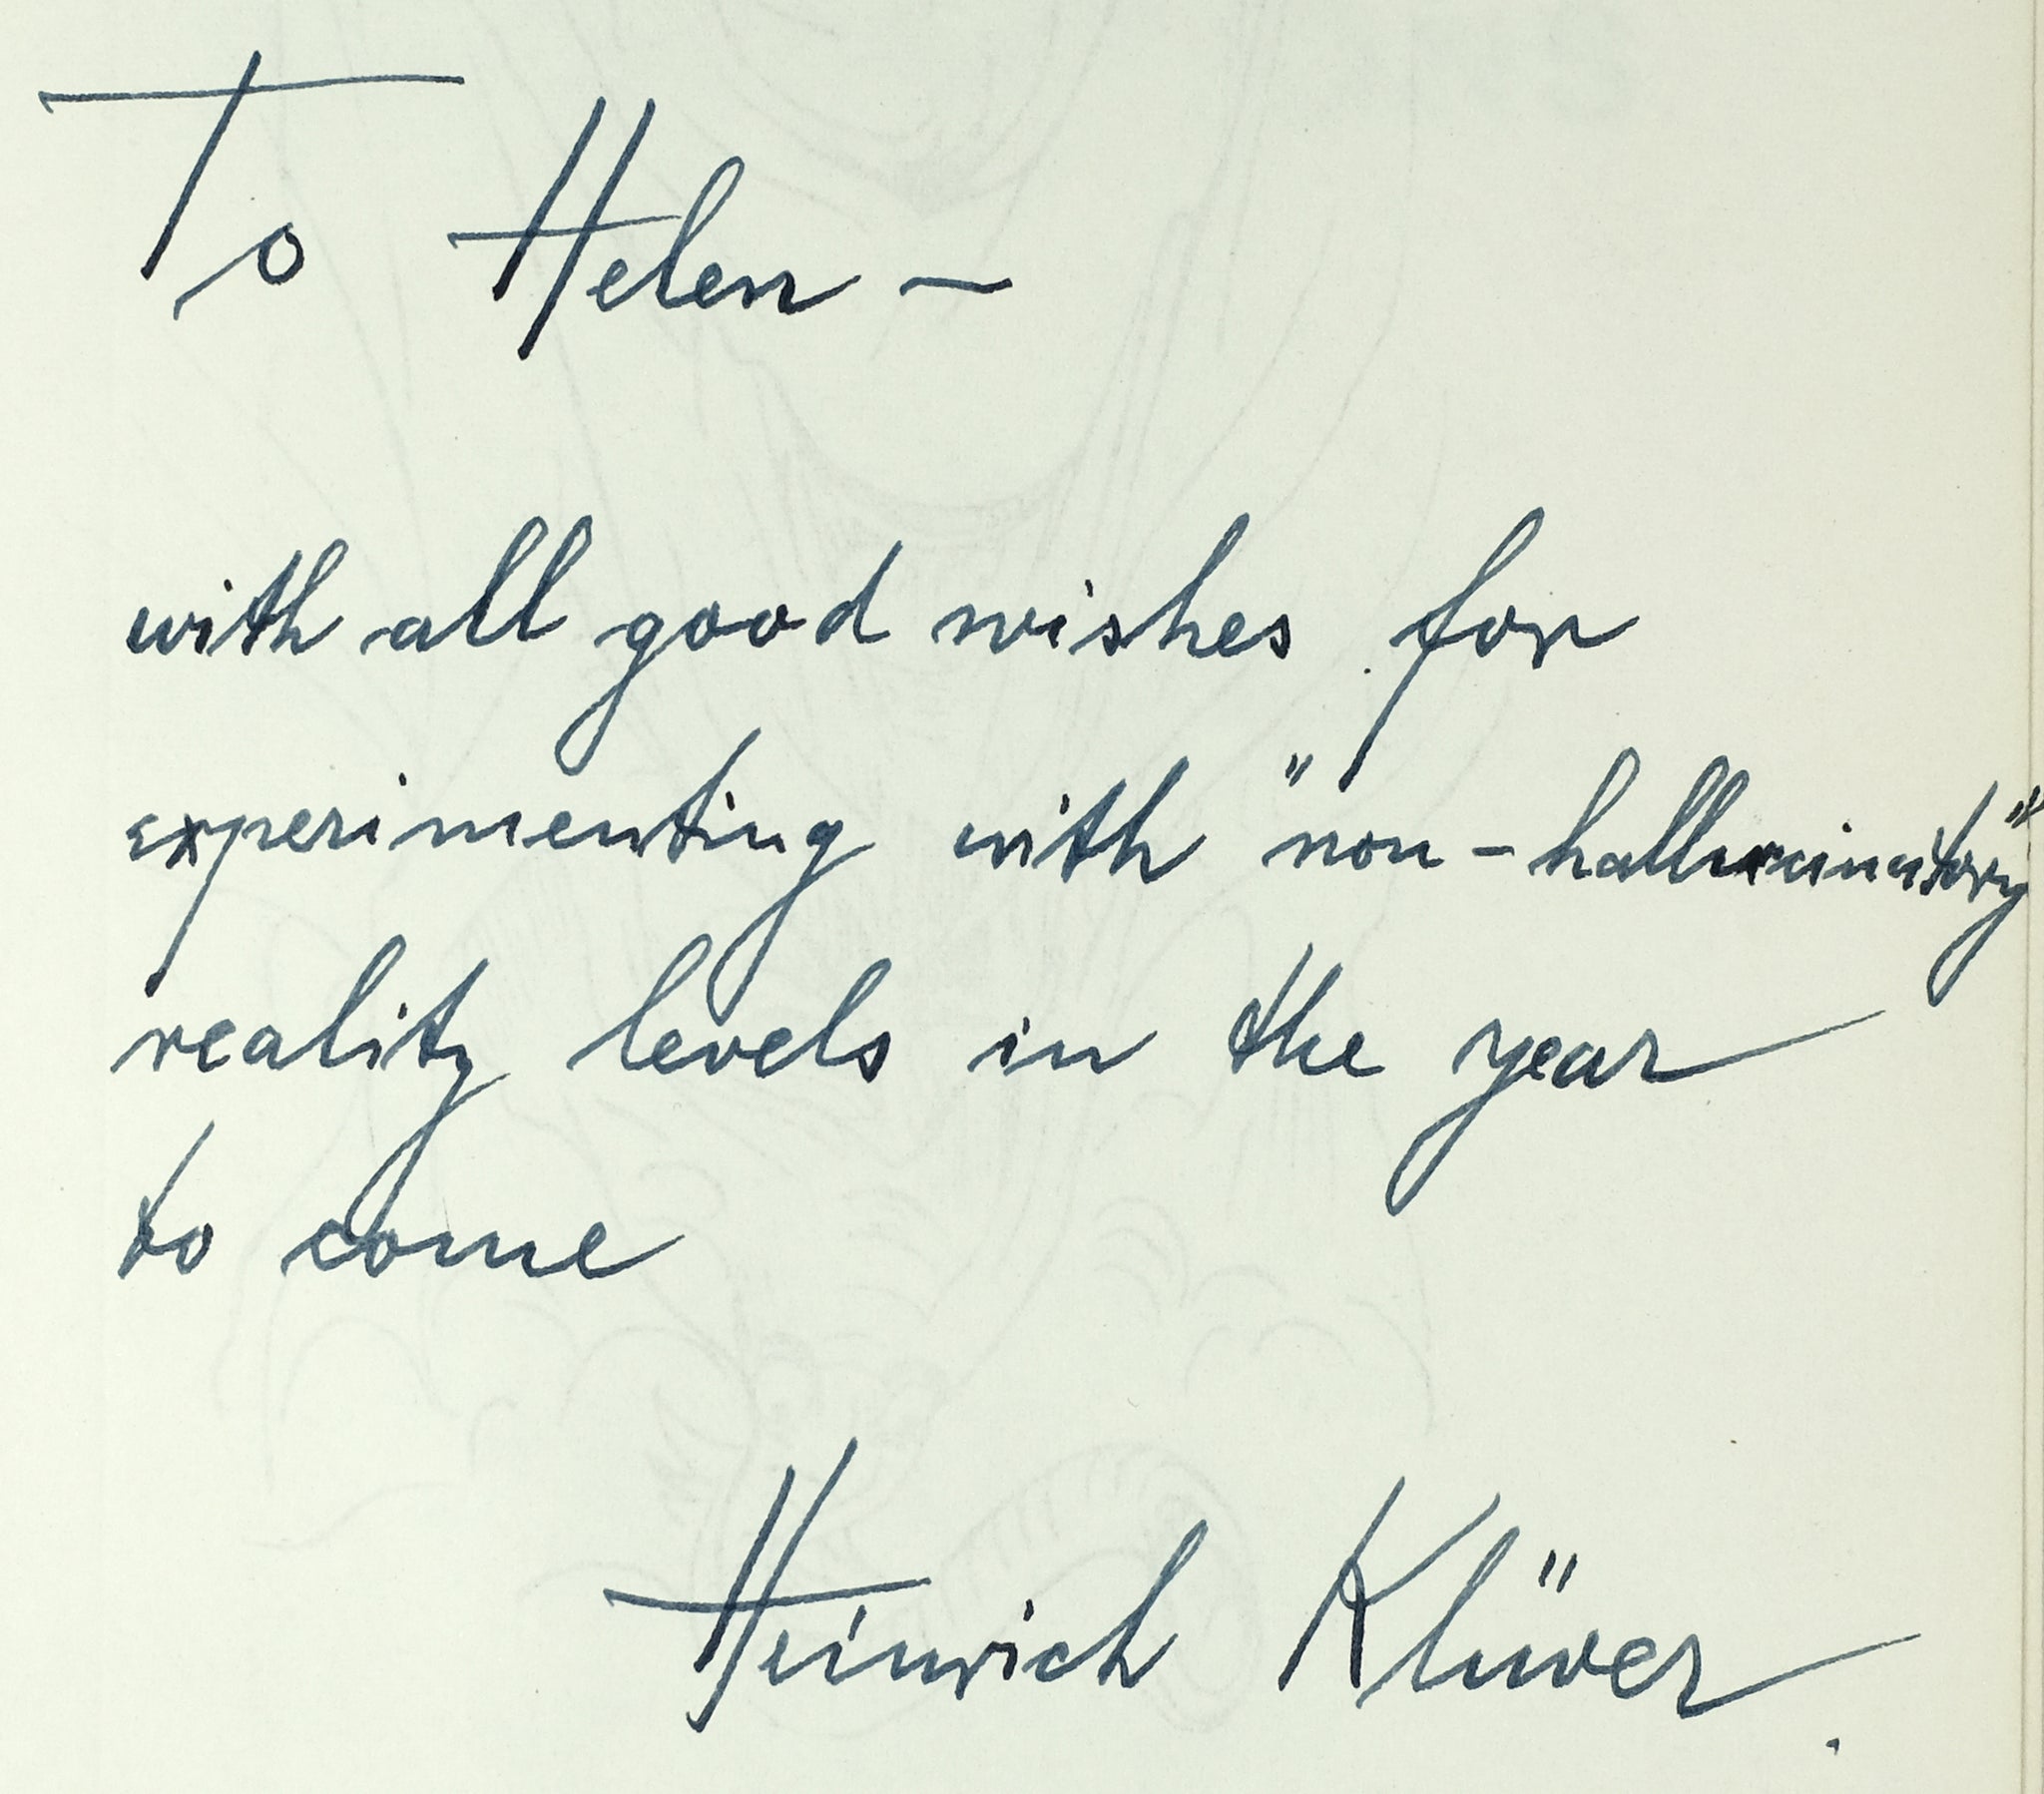 To Helen –
with all good wishes for
experimenting with "non-hallucinatory"
reality levels in the year
to come
Heinrich Klüver.